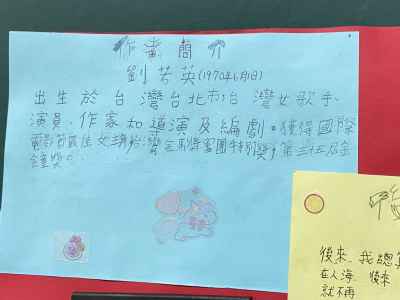 作者簡介
劉若英(1970年6月1日)
出生於台灣台北市,台灣女歌手、
演員、作家和導演及編劇。獲得國際
電影節最佳女主
特別獎,第三十五屆金
鐘獎。
後來,我總算
在人海 後來
就不再